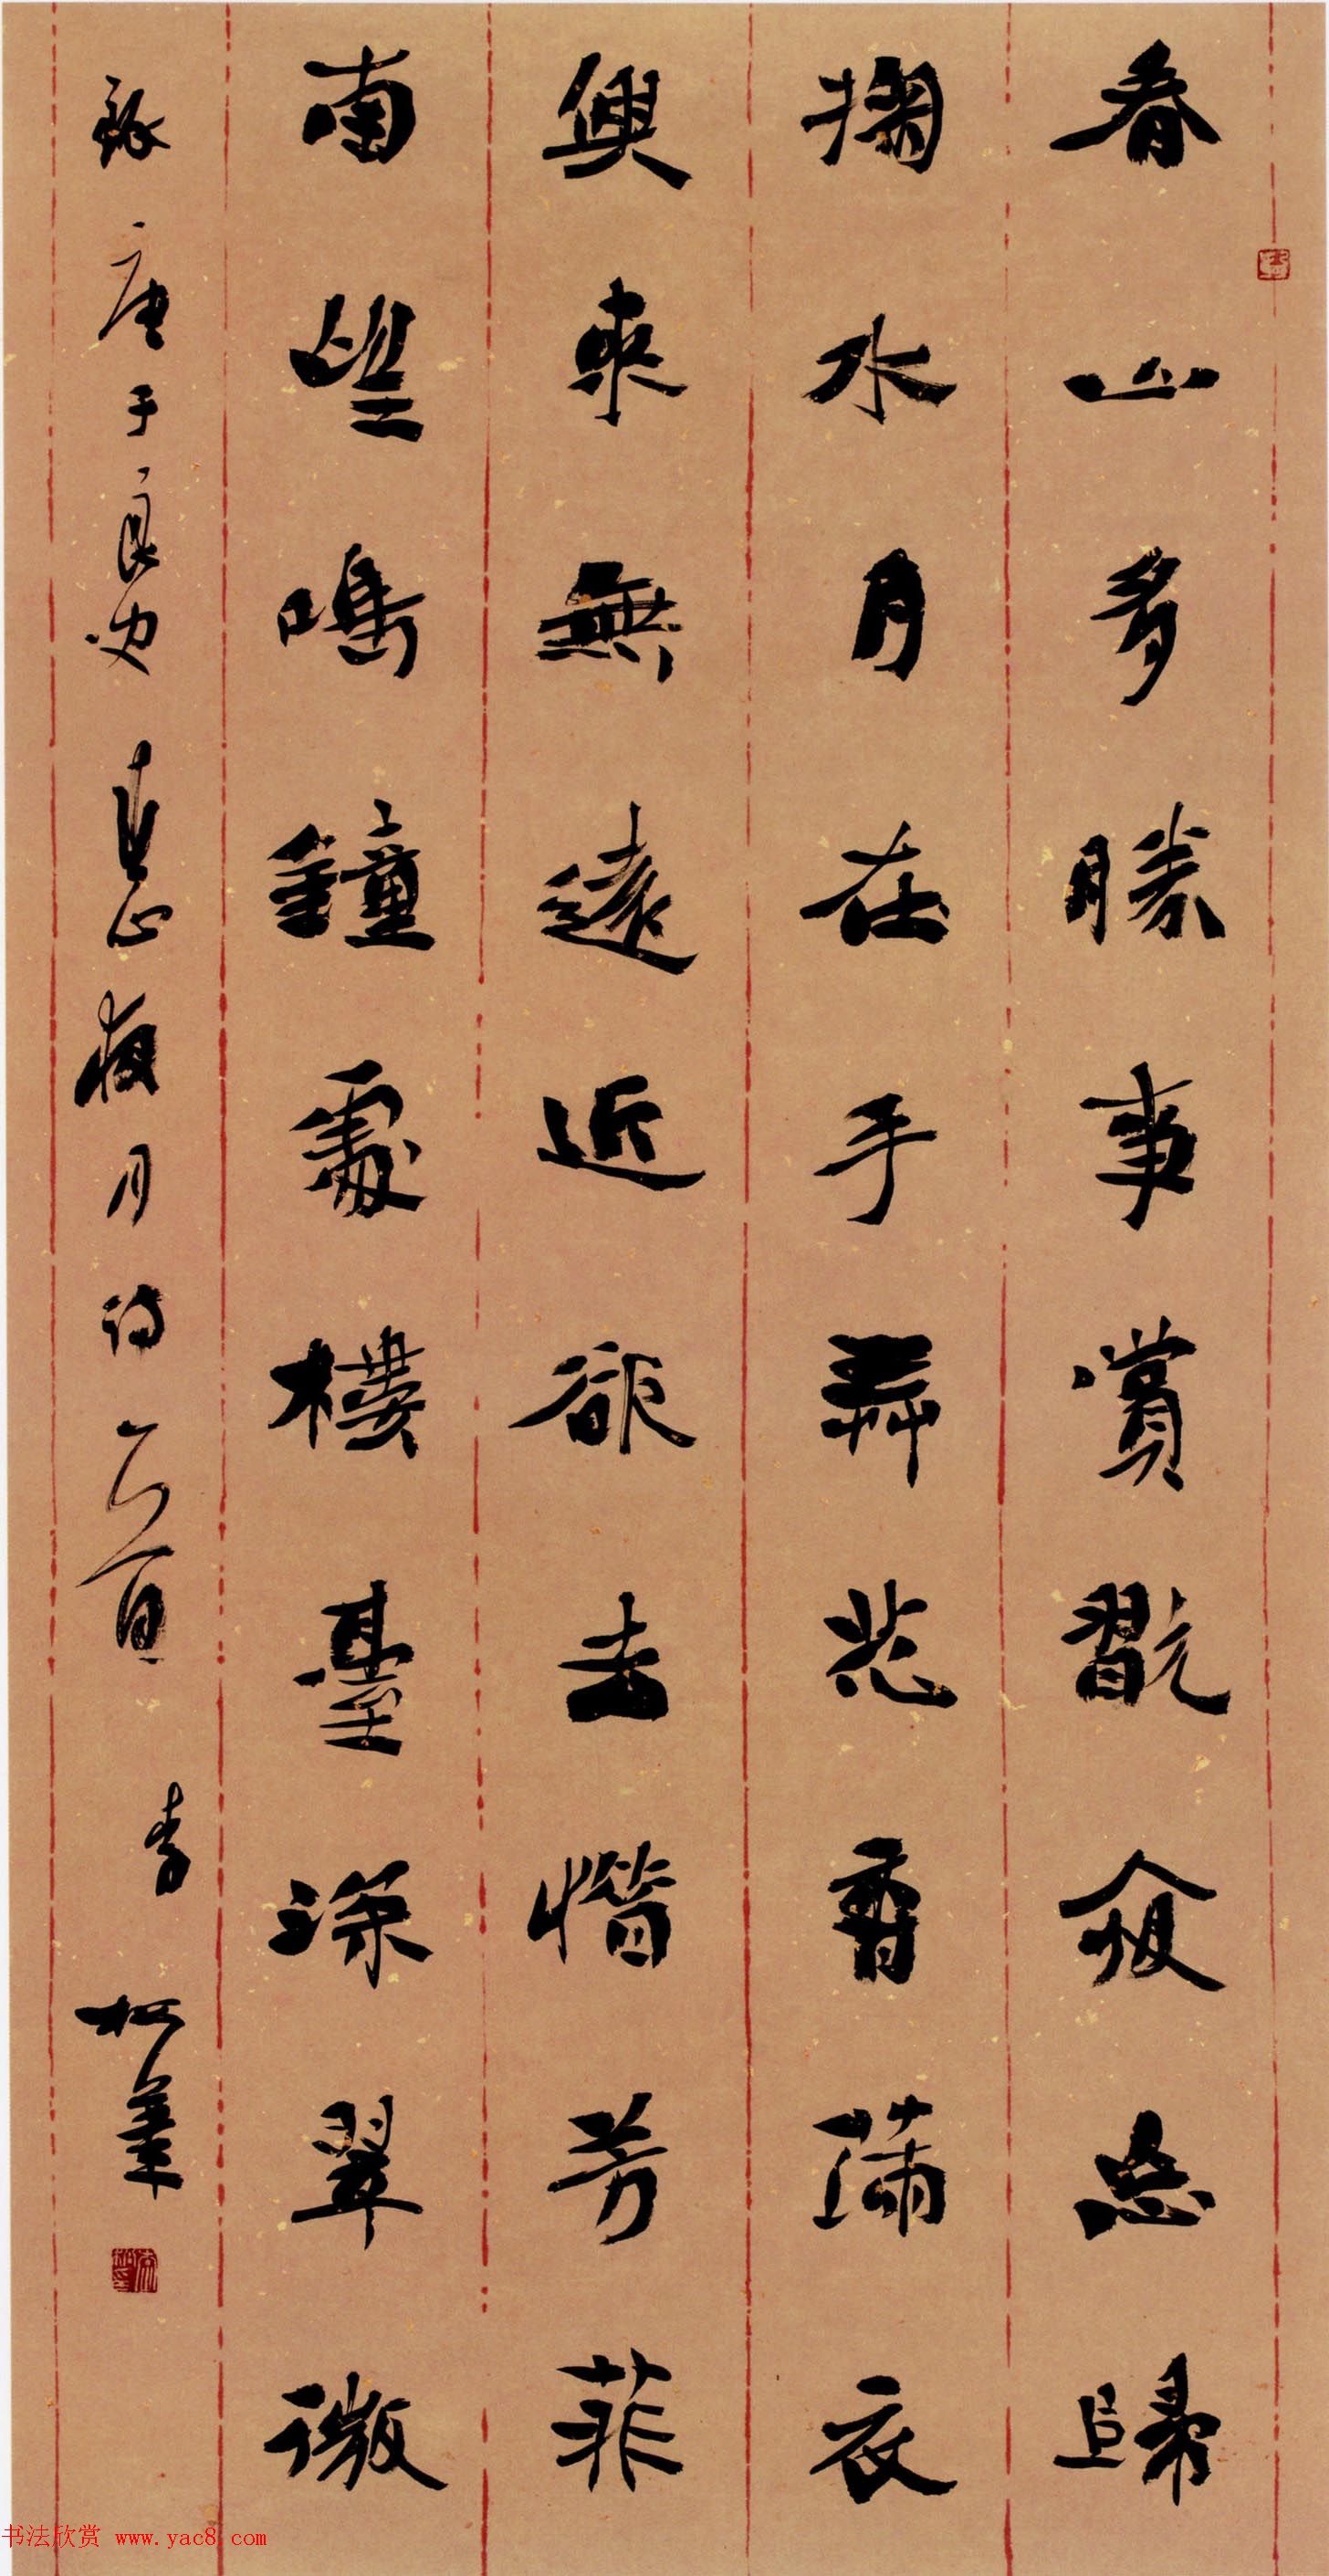 春山多勝事賞翫夜忘歸
掬水月在手弄花香滿衣
興來無遠近欲去惜芳菲
南望鳴鐘處樓臺深翠微
錄唐于良史春山夜月詩一首 李松筆
书法欣赏 www.yac8.com